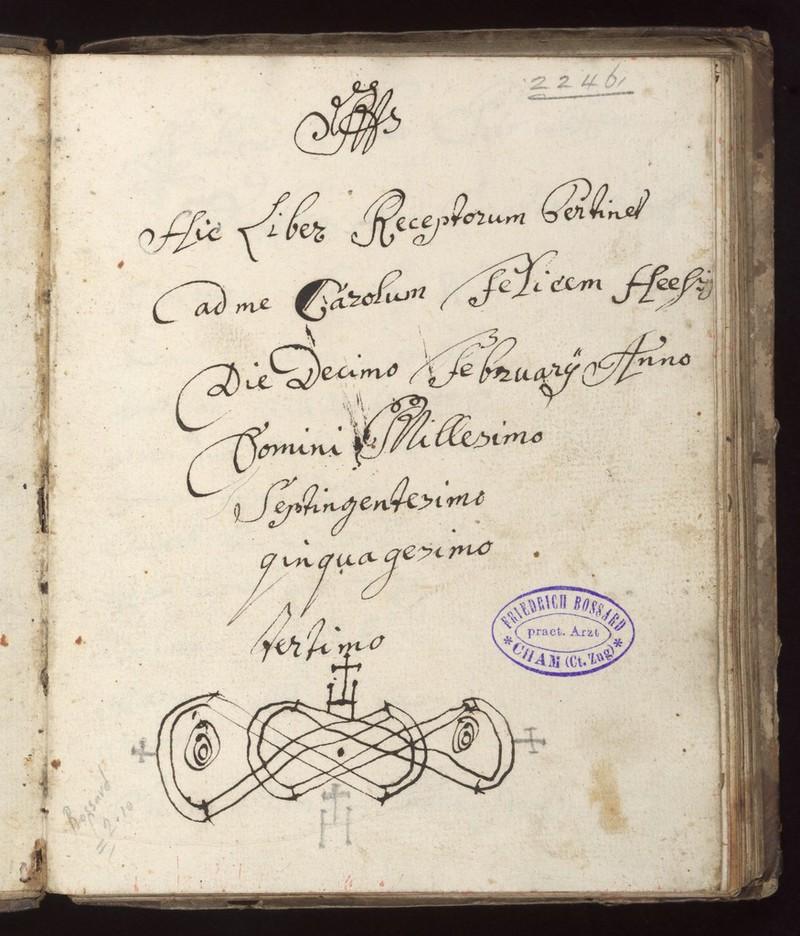 2246
Hic Liber Receptorum Pertinet
ad me Carolum Felicem
Die Decimo Februarÿ Anno
Domini Millesimo
Septingentesimo
qinquagesimo
tertimo
FRIEDRICH BOSSARD
pract. Arzt
* CHAM (Ct. Zug) *
Bossard